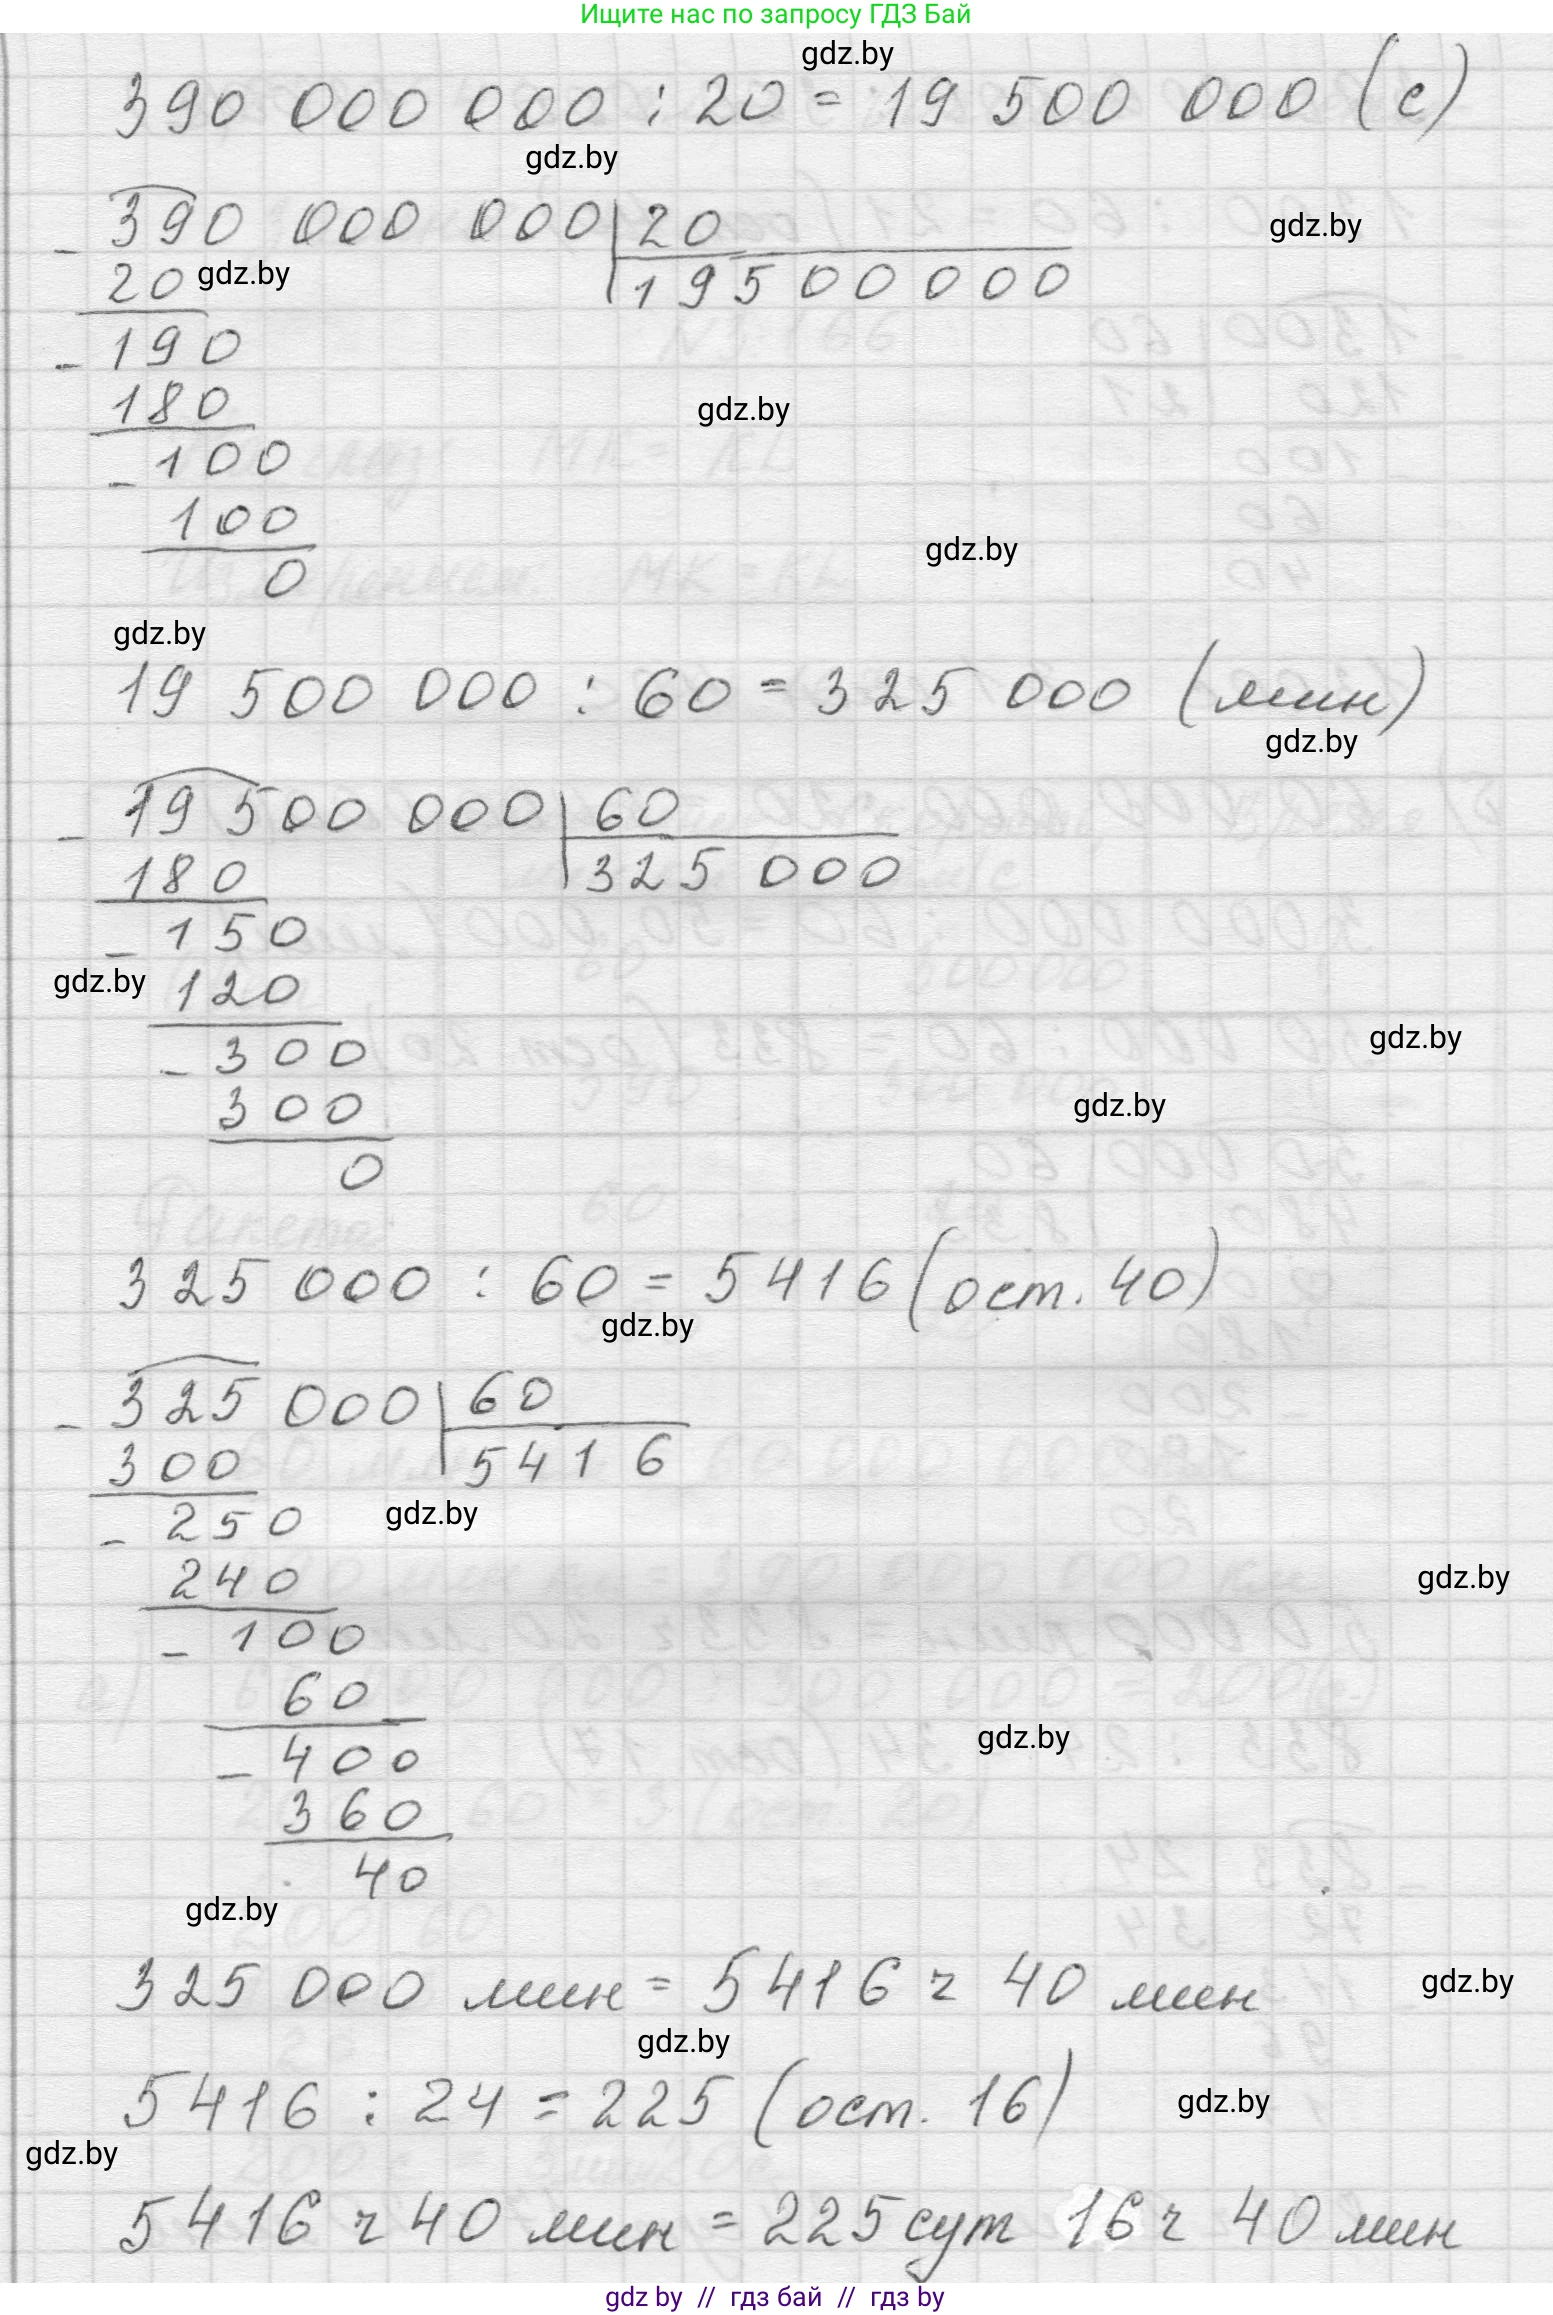 Ищите нас по запросу ГДЗ Бай
gdz.by
390 000 000 : 20 = 19 500 000 (с)
gdz.by
390 000 000 20
gdz.by
20 gdz.by
19500000
190
180
gdz.by
100
100
gdz.by
0
gdz.by
19 500 000 : 60 = 325 000 (мин)
gdz.by
19 500 000 60
180
325 000
150
gdz.by
120
gdz.by
300
gdz.by
300
0
325 000 : 60 = 5416 (ост. 40)
gdz.by
325 000 60
300
5416
gdz.by
250
240
gdz.by
100
60
gdz.by
400
360
40
gdz.by
325 000 мин = 5416 ч 40 мин
gdz.by
gdz.by
5416 : 24 = 225 (ост. 16)
gdz.by
gdz.by
5416 ч 40 мин = 225 сут 16 ч 40 мин
gdz by // гдз бай // гдз by